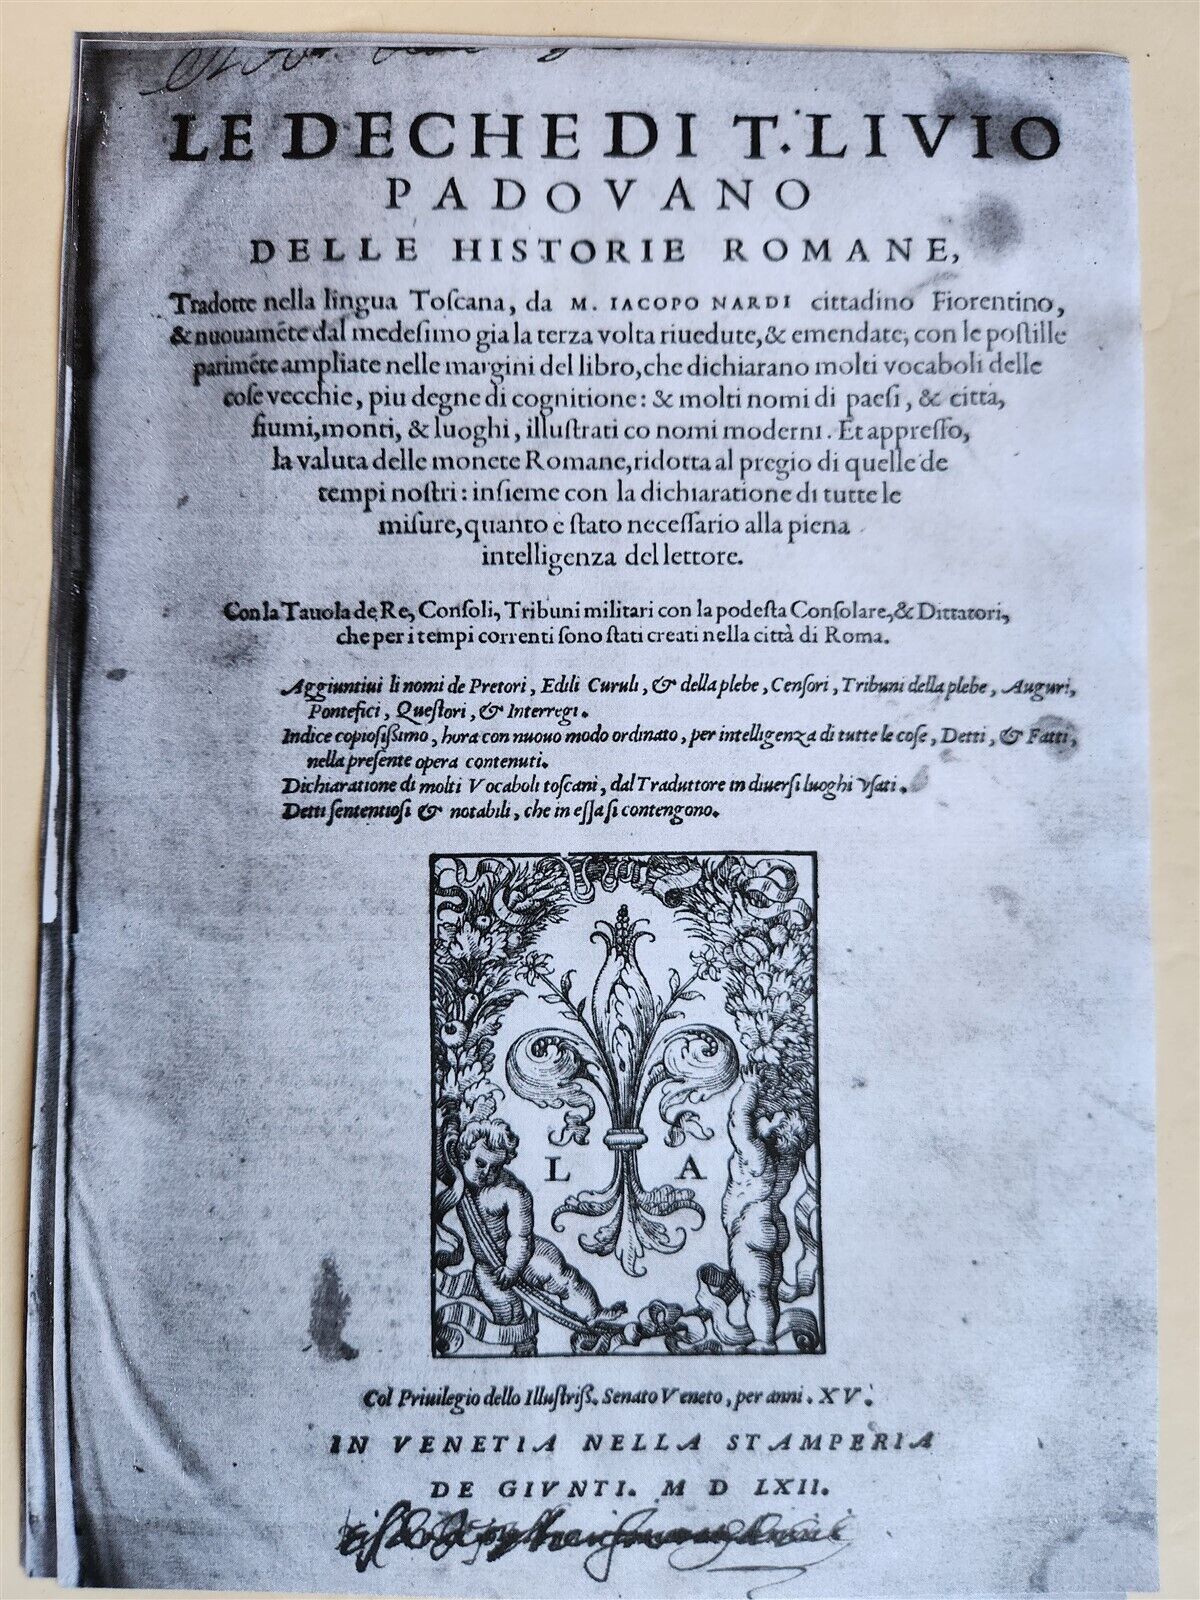 LE DECHE DI T. LIVIO
PADOVANO
DELLE HISTORIE ROMANE,
Tradotte nella lingua Toſcana, da M. IACOPO NARDI cittadino Fiorentino,
& nuouamẽte dal medeſimo gia la terza volta riuedute, & emendate; con le poſtille
parimẽte ampliate nelle margini del libro, che dichiarano molti vocaboli delle
coſe vecchie, piu degne di cognitione: & molti nomi di paeſi, & città,
fiumi, monti, & luoghi, illuſtrati co nomi moderni. Et appreſſo,
la valuta delle monete Romane, ridotta al pregio di quelle de
tempi noſtri: inſieme con la dichiaratione di tutte le
miſure, quanto è ſtato neceſſario alla piena
intelligenza del lettore.
Con la Tauola de Re, Conſoli, Tribuni militari con la podeſta Conſolare, & Dittatori,
che per i tempi correnti ſono ſtati creati nella città di Roma.
Aggiuntiui li nomi de Pretori, Edili Curuli, & della plebe, Cenſori, Tribuni della plebe, Auguri,
Pontefici, Queſtori, & Interregi.
Indice copioſiſsimo, hora con nuouo modo ordinato, per intelligenza di tutte le coſe, Detti, & Fatti,
nella preſente opera contenuti.
Dichiaratione di molti Vocaboli toſcani, dal Traduttore in diuerſi luoghi vſati.
Detti ſententioſi & notabili, che in eſſa ſi contengono.
L A
Col Priuilegio dello Illuſtriſſ. Senato Veneto, per anni. XV.
IN VENETIA NELLA STAMPERIA
DE GIVNTI. M D LXII.